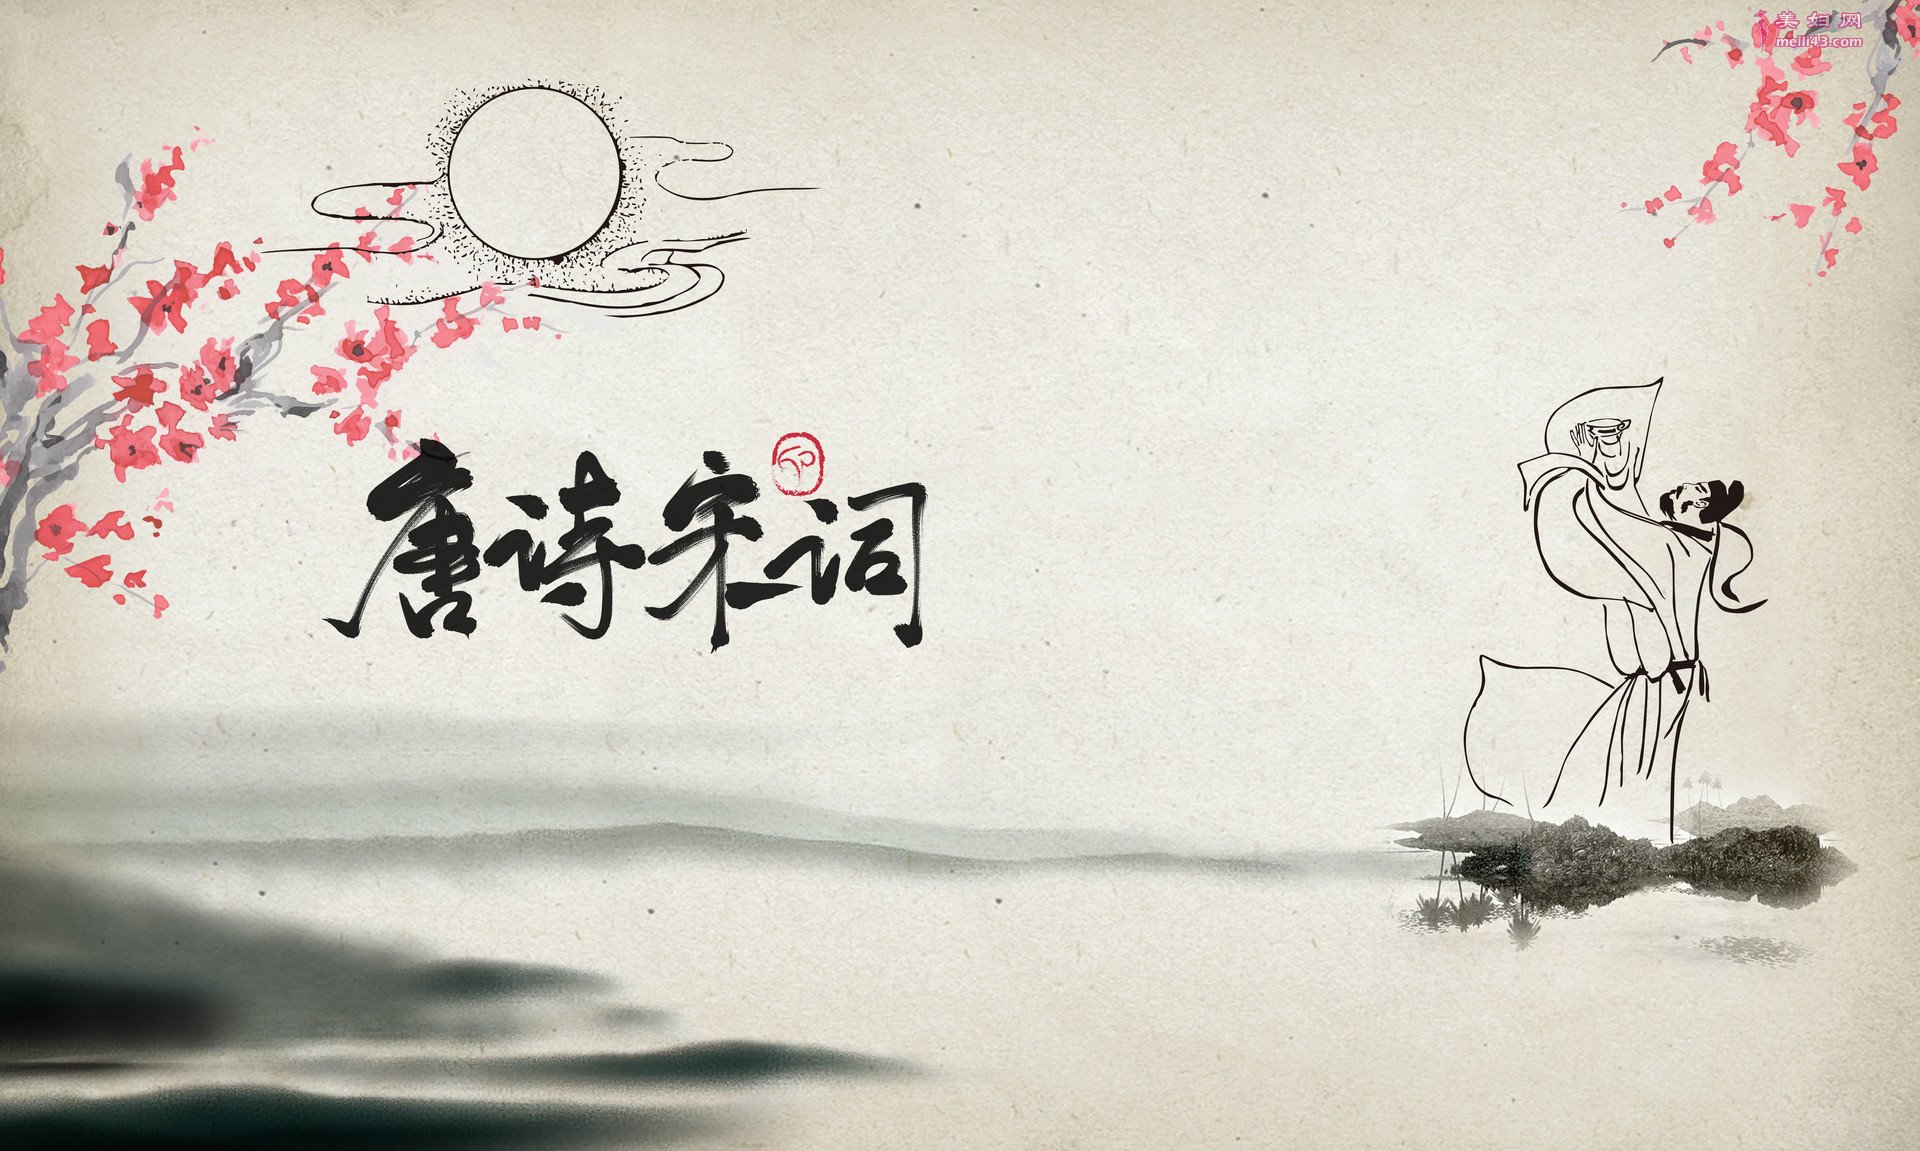 美妇网
meili43.com
唐诗宋词